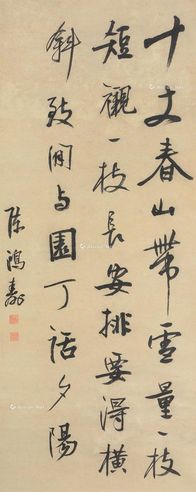 十丈春山带雪量一枝
短观一枝长安排要得横
斜致闲与园丁话夕阳
陈鸿寿